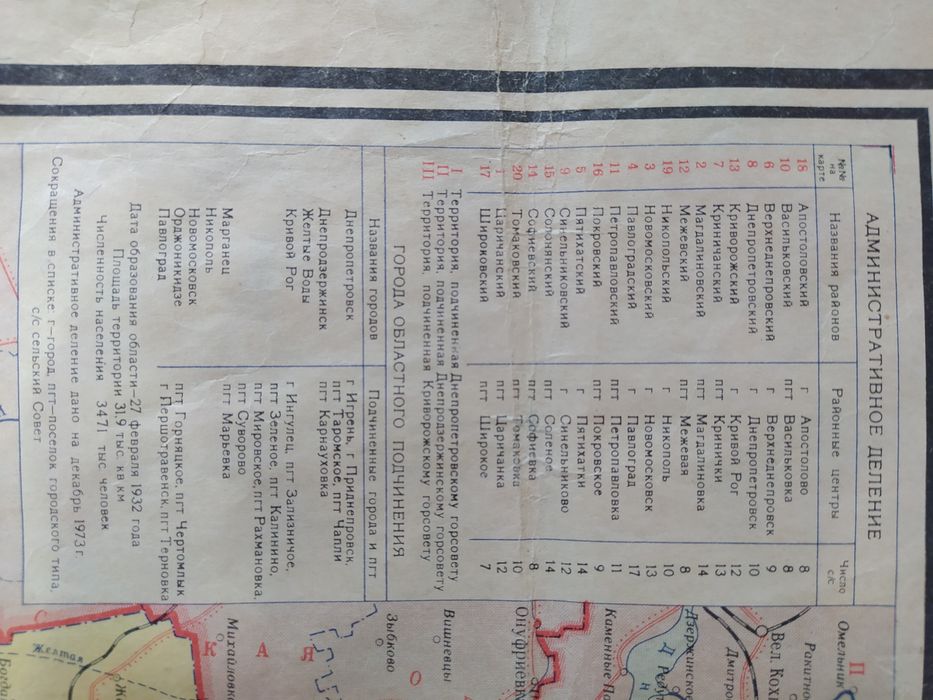 АДМИНИСТРАТИВНОЕ ДЕЛЕНИЕ
№№ на карте Названия районов Районные центры Число с/с
18 Апостоловский г Апостолово 8
10 Васильковский пгт Васильковка 8
6 Верхнеднепровский г Верхнеднепровск 9
8 Днепропетровский г Днепропетровск 10
13 Криворожский г Кривой Рог 12
7 Криничанский пгт Кринички 13
2 Магдалиновский пгт Магдалиновка 14
12 Межевский пгт Межевая 8
19 Никопольский г Никополь 10
3 Новомосковский г Новомосковск 13
4 Павлоградский г Павлоград 17
11 Петропавловский пгт Петропавловка 11
16 Покровский пгт Покровское 9
5 Пятихатский г Пятихатки 14
9 Синельниковский г Синельниково 12
15 Солонянский пгт Соленое 14
14 Софиевский пгт Софиевка 8
20 Томаковский пгт Томаковка 10
1 Царичанский пгт Царичанка 12
17 Широковский пгт Широкое 7
I Территория, подчиненная Днепропетровскому горсовету
II Территория, подчиненная Днепродзержинскому горсовету
III Территория, подчиненная Криворожскому горсовету
ГОРОДА ОБЛАСТНОГО ПОДЧИНЕНИЯ
Названия городов Подчиненные города и пгт
Днепропетровск г Игрень, г Приднепровск,
пгт Таромское, пгт Чапли
Днепродзержинск пгт Карнауховка
Желтые Воды
Кривой Рог г Ингулец, пгт Зализничое,
пгт Зеленое, пгт Калинино,
пгт Мировское, пгт Рахмановка,
пгт Суворово
Марганец пгт Марьевка
Никополь
Новомосковск
Орджоникидзе пгт Горняцкое, пгт Чертомлык
Павлоград г Першотравенск, пгт Терновка
Дата образования области—27 февраля 1932 года
Площадь территории 31.9 тыс. кв км
Численность населения 3471 тыс. человек
Административное деление дано на декабрь 1973 г.
Сокращения в списке: г—город, пгт—поселок городского типа,
с/с сельский Совет
Омельник
П
Ракитно
Вел. Кох
Дмитро
Дзержинское
Каменные По
Онуфриевк
Вишневцы
Зыбково
О
К А Я
С
Михайловк
Желтая
Ж
Богда